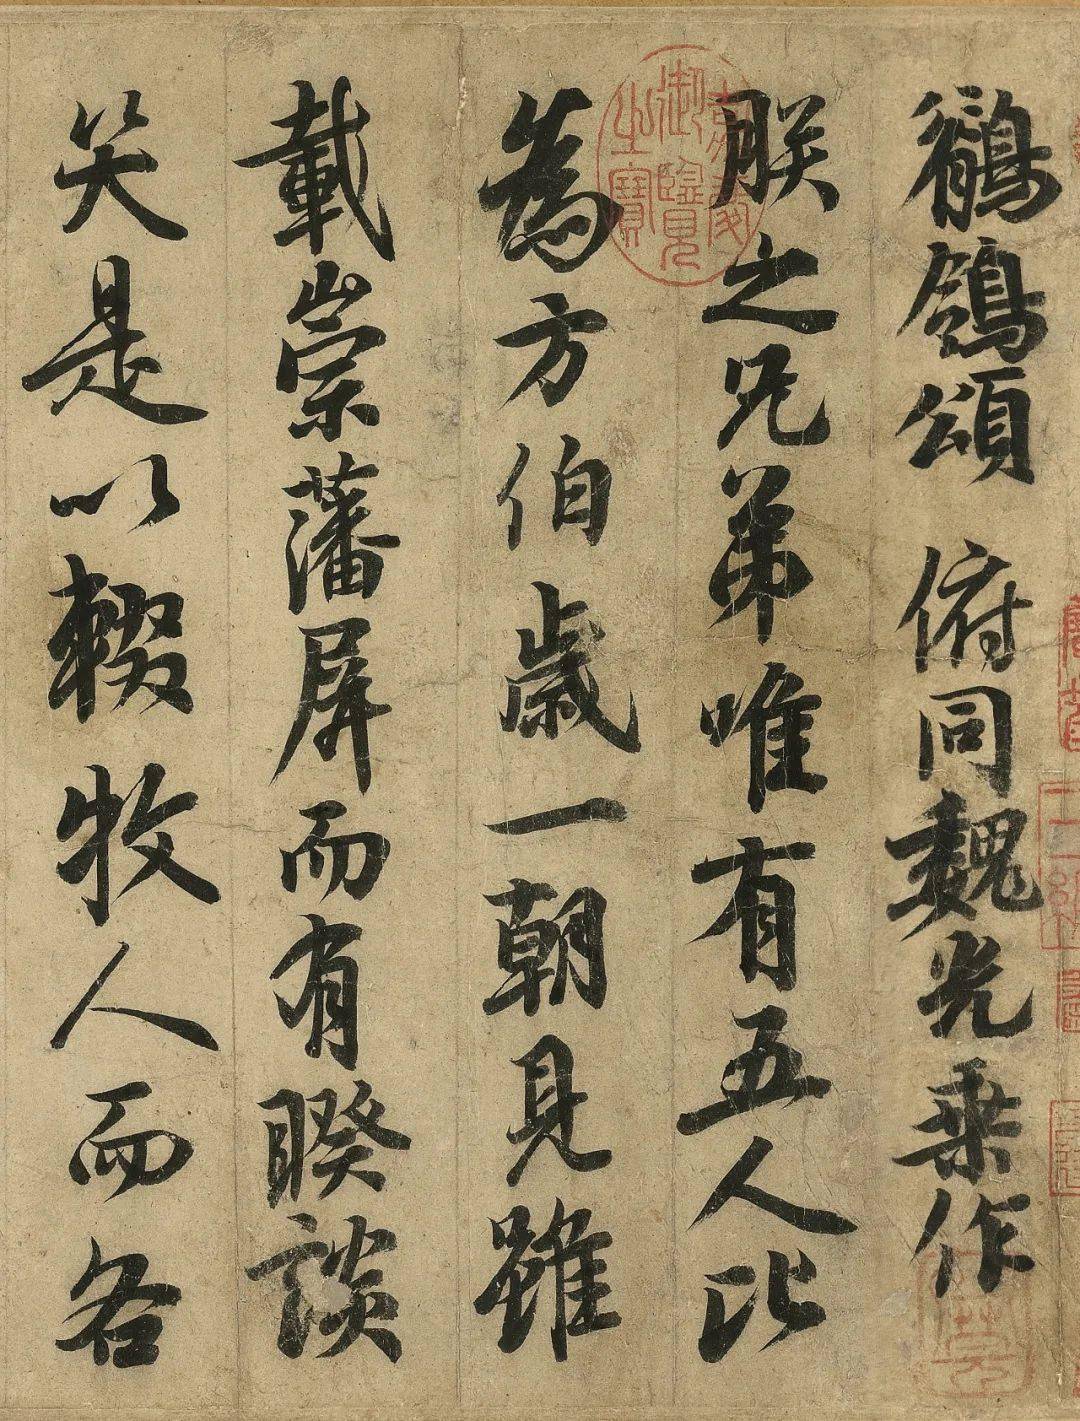 鶺鴒頌 俯同魏光乗作
朕之兄弟唯有五人比
為方伯歲一朝見雖
載崇藩屏而有睽談
笑是以輟牧人而各
嘉慶御覽之寶